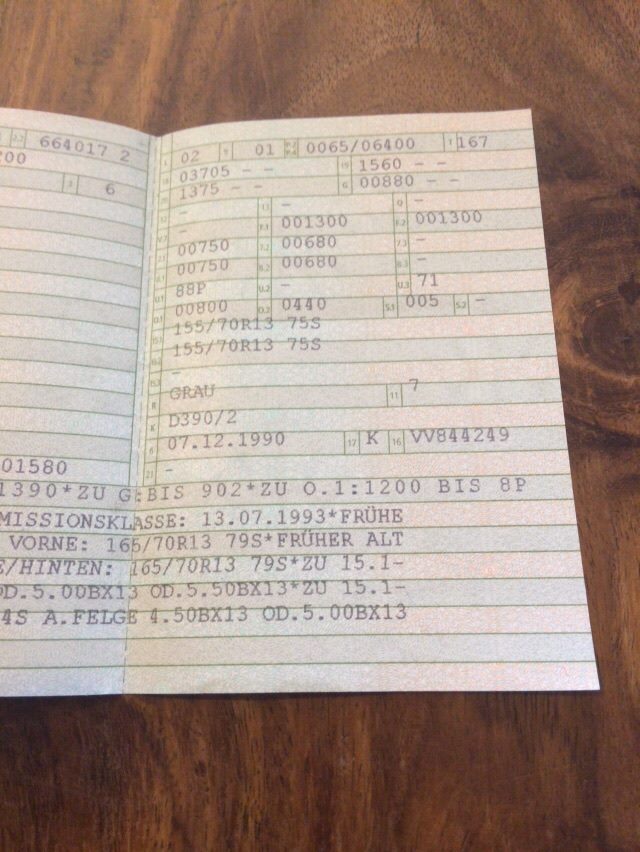 2.2 664017 2
L 02 9 01 P.2 P.4 0065/06400 T 167
200
18 03705 - - 19 1560 - -
J 6
20 1375 - - G 00880 - -
12 - 13 - Q -
V.7 - F.1 001300 F.2 001300
7.1 00750 7.2 00680 7.3 -
8.1 00750 8.2 00680 8.3 -
U.1 88P U.2 - U.3 71
O.1 00800 O.2 0440 S.1 005 S.2 -
15.1 155/70R13 75S
15.2 155/70R13 75S
15.3 -
R GRAU 11 7
K D390/2
6 07.12.1990 17 K 16 VV844249
01580 21 -
1390*ZU G:BIS 902*ZU O.1:1200 BIS 8P
MISSIONSKLASSE: 13.07.1993*FRÜHE
VORNE: 165/70R13 79S*FRÜHER ALT
E/HINTEN: 165/70R13 79S*ZU 15.1-
OD.5.00BX13 OD.5.50BX13*ZU 15.1-
4S A.FELGE 4.50BX13 OD.5.00BX13